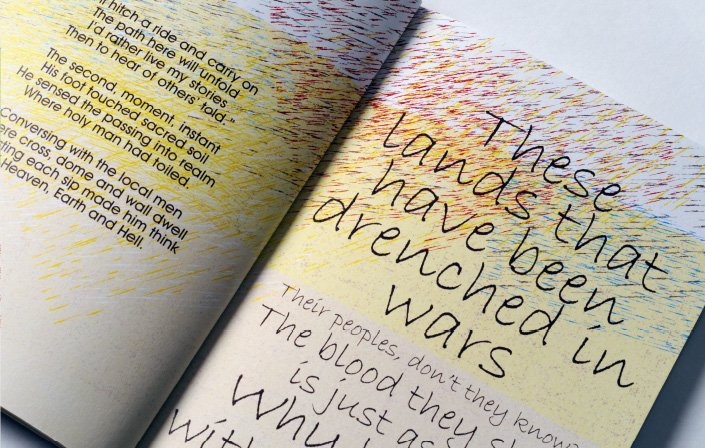 hitch a ride and carry on
The path here will unfold
I'd rather live my stories
Then to hear of others' told."
The second, moment, instant
His foot touched sacred soil
He sensed the passing into realm
Where holy man had toiled.
Conversing with the local men
cross, dome and wall dwell
each sip made him think
Heaven, Earth and Hell.
These
lands that
have been
drenched in
wars
Their peoples, don't they know?
The blood they
is just as
Why